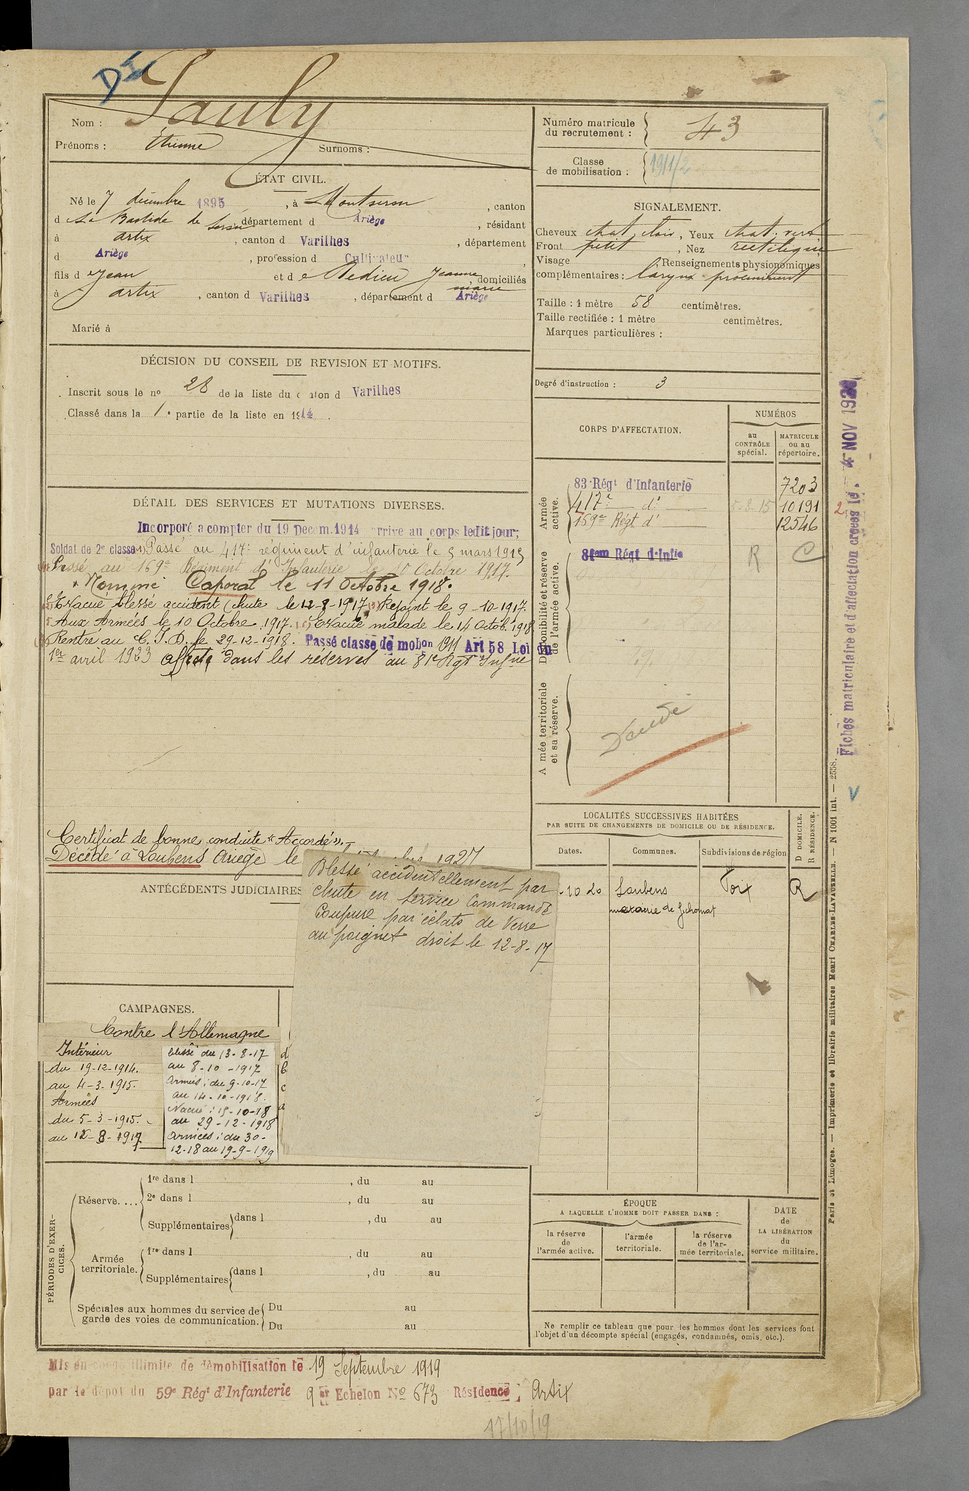 Nom :
Prénoms : Étienne Surnoms :
ÉTAT CIVIL.
Né le 7 décembre 1895, à Montseron, canton
d La Bastide de Sérou, département d Ariège, résidant
à Artix, canton d Varilhes, département
d Ariège, profession d Cultivateur
fils d Jean et d Jeanne marie domiciliés
à Artix, canton d Varilhes, département d Ariège
Marié à
DÉCISION DU CONSEIL DE REVISION ET MOTIFS.
Inscrit sous le n° 28 de la liste du canton d Varilhes
Classé dans la 1. partie de la liste en 1914.
DÉTAIL DES SERVICES ET MUTATIONS DIVERSES.
Incorporé a compter du 19 Decem.1914 arrivé au corps ledit jour;
Soldat de 2e classe Passé au 417e régiment d'infanterie le 5 mars 1915
Passé au 159e Régiment d'Infanterie le 10 Octobre 1917.
Nommé Caporal le 11 Octobre 1918.
Evacué blessé accident (chute le 12-8-1917 Rejoint le 9-10-1917.
Aux Armées le 10 Octobre 1917. Evacué malade le 14 Octob. 1918
Rentré au C.I.D. le 29-12-1918. Passé classe de mobon 1911 Art 58 Loi du
1er avril 1923 affecté dans les réserves au 81e Rgt Infne
Certificat de bonne conduite "Accordé".
Décédé à Loubens Ariège le 1927
Blessé accidentellement par
chute en service Commandé
Coupure par éclats de Verre
au poignet droit le 12-8-17
ANTÉCÉDENTS JUDICIAIRES
CAMPAGNES.
Contre l'Allemagne
Intérieur
du 19-12-1914.
au 4-3-1915.
Armées
du 5-3-1915.
au 12-8-1917
blessé du 13-8-17
au 8-10-1917
Armées : du 9-10-17
au 14-10-1918.
Evacué : 15-10-18
au 29-12-1918
Armées : du 30-
12-18 au 19-9-1919
PÉRIODES D'EXERCICES.
Réserve....
1re dans l , du au
2e dans l , du au
Supplémentaires dans l , du au
Armée territoriale.
1re dans l , du au
Supplémentaires dans l , du au
Spéciales aux hommes du service de garde des voies de communication.
Du au
Du au
Mis en congé illimité de démobilisation le 19 Septembre 1919
par le dépôt du 59e Régt d'Infanterie 9 Echelon No 673 Résidence : Artix
17/10/19
Numéro matricule du recrutement : 43
Classe de mobilisation : 1911/2
SIGNALEMENT.
Cheveux chat. clair, Yeux chat. vert
Front petit, Nez rectiligne
Visage Renseignements physionomiques
complémentaires : larynx proéminent
Taille : 1 mètre 58 centimètres.
Taille rectifiée : 1 mètre centimètres.
Marques particulières :
Degré d'instruction : 3
CORPS D'AFFECTATION.
NUMÉROS
au CONTRÔLE spécial.
MATRICULE ou au répertoire.
Armée active.
83e Régt d'Infanterie 7203
417e d° 10191
159e Régt d° 12546
Disponibilité et réserve de l'armée active.
81em Régt d'Infie R C
Armée territoriale et sa réserve.
LOCALITÉS SUCCESSIVES HABITÉES
PAR SUITE DE CHANGEMENTS DE DOMICILE OU DE RÉSIDENCE.
Dates. Communes. Subdivisions de région
D DOMICILE. R RÉSIDENCE.
10 20 Loubens Foix R
ÉPOQUE
A LAQUELLE L'HOMME DOIT PASSER DANS :
la réserve de l'armée active.
l'armée territoriale.
la réserve de l'armée territoriale.
DATE de LA LIBÉRATION du service militaire.
Ne remplir ce tableau que pour les hommes dont les services font
l'objet d'un décompte spécial (engagés, condamnés, omis, etc.).
Fiches matriculaire et d'affectation créées le 4 NOV
Paris et Limoges. — Imprimerie et librairie militaires Henri CHARLES-LAVAUZELLE. — N 1001 int. — 2558.